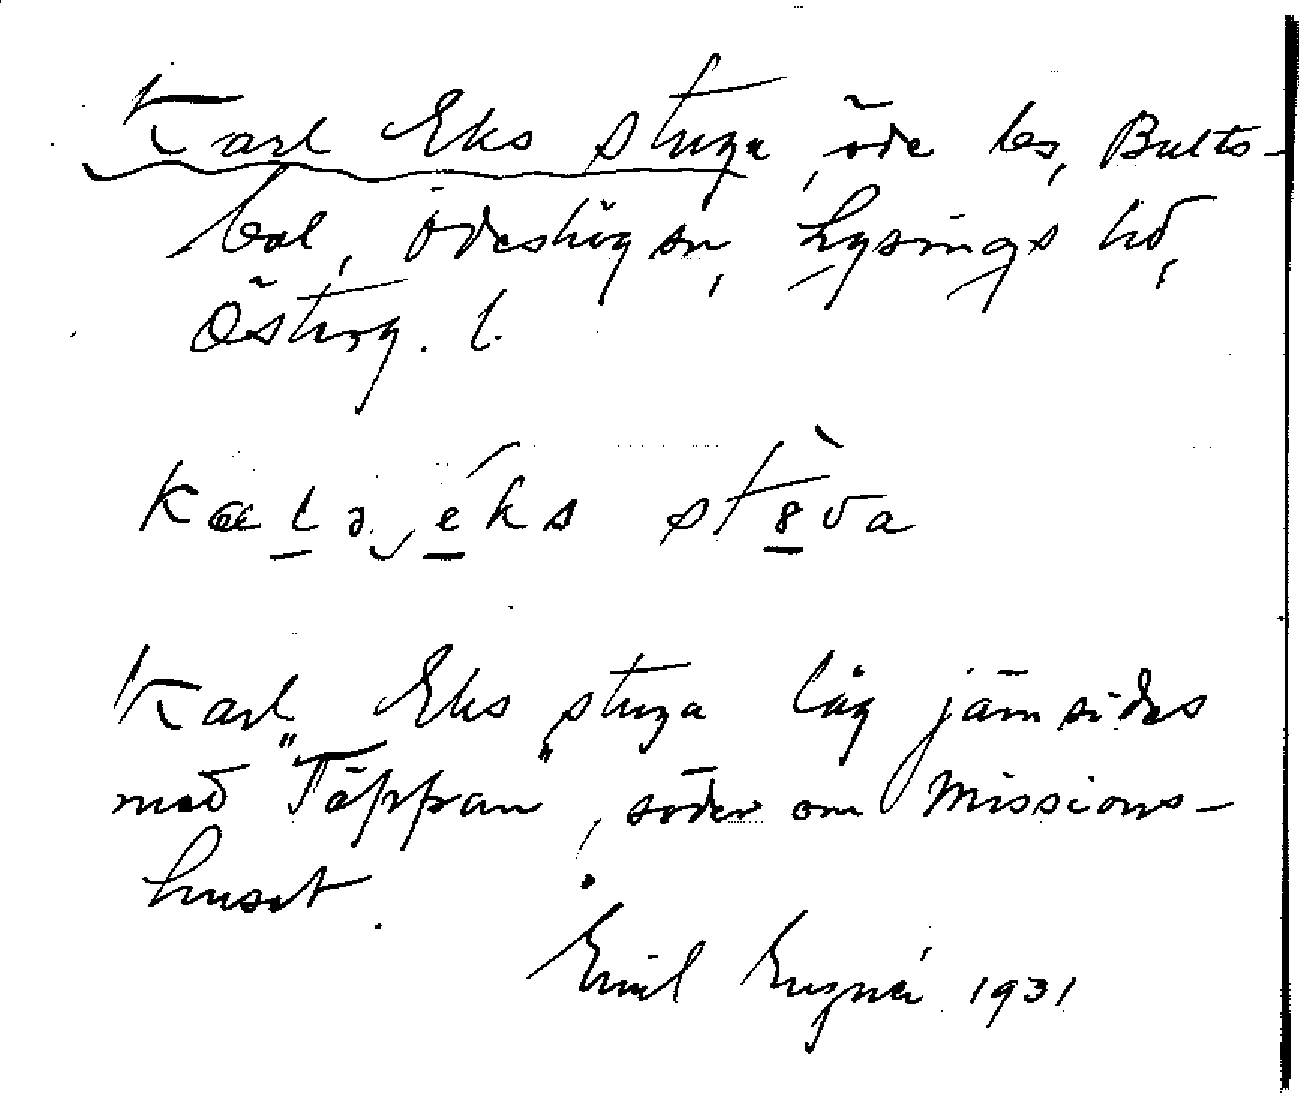 Karl Eks stuga, öde lgs, Bults-
bol, Ödeshög sn, Lysings hd,
Österg. l.
stuva
Karl Eks stuga låg jämsides
med "Täppan", söder om Missions-
huset.
Emil 1931